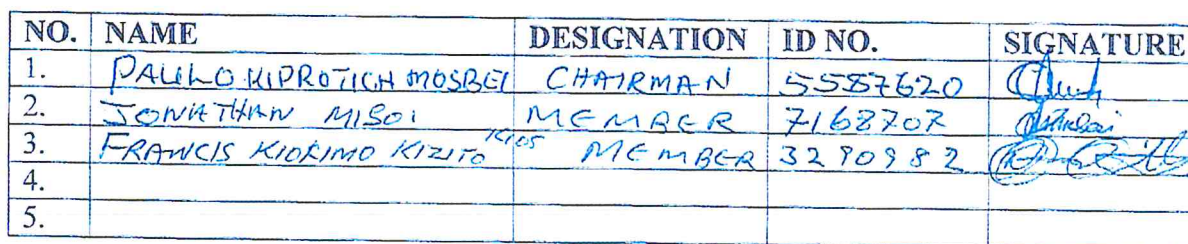 NO. NAME DESIGNATION ID NO. SIGNATURE
1. PAULO KIPROTICH MOSBEI CHAIRMAN 5587620
2. JONATHAN MISOI MEMBER 7168707
3. FRANCIS KIOKIMO KIZITO KIOS MEMBER 3290982
4.
5.